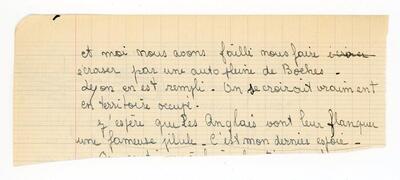 et moi nous avons failli nous faire
écraser par une auto pleine de Boches.
Lyon en est rempli. On se croirait vraiment
en territoire occupé.
J'espère que les Anglais vont leur flanquer
une fameuse pilule. C'est mon dernier espoir.